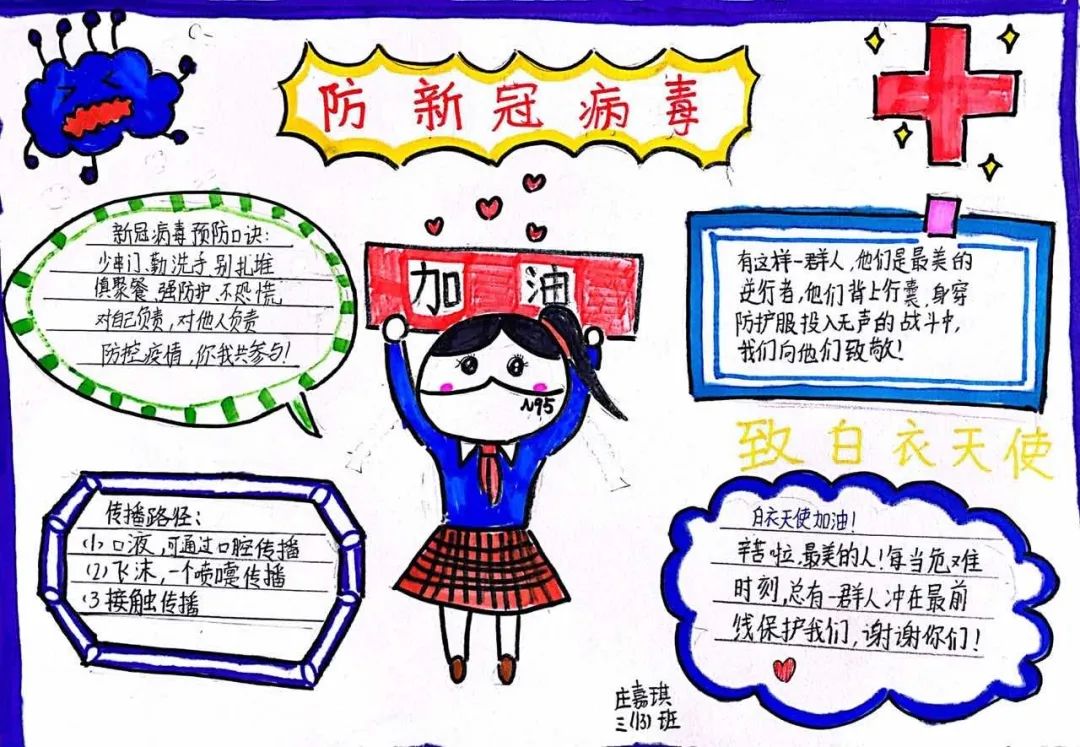 防新冠病毒
新冠病毒预防口诀：
少串门、勤洗手、别扎堆
惧聚餐、强防护、不恐慌
对自己负责，对他人负责
防控疫情，你我共参与！
加油
N95
有这样一群人，他们是最美的
逆行者，他们背上行囊，身穿
防护服投入无声的战斗中，
我们向他们致敬！
致白衣天使
传播路径：
(1)口液，可通过口腔传播
(2)飞沫，一个喷嚏传播
(3接触传播
白衣天使加油！
辛苦啦，最美的人！每当危难
时刻，总有一群人冲在最前
线保护我们，谢谢你们！
庄嘉琪
三(13)班